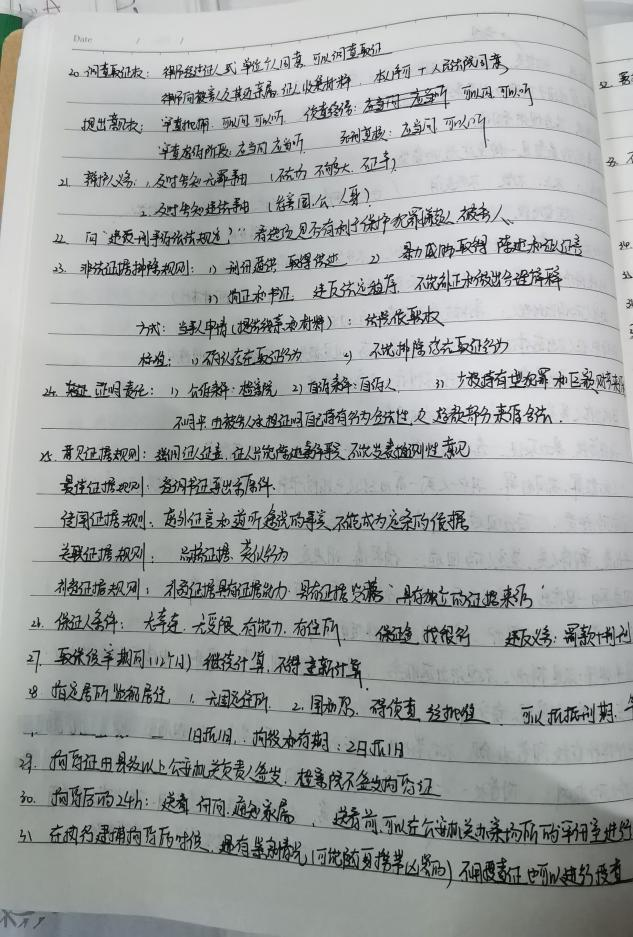 Date / /
20. 调查取证权: 律师经过证人或单位个人同意, 可以调查取证
律师向被害人及其近亲属, 证人收集材料, 本人许可+人民法院同意
提出意见权: 审查批捕: 可以问 可以听 侦查终结: 应当问 应当听 可以问 可以听
审查起诉阶段: 应当问 应当听 死刑复核: 应当问 可以听
21. 辩护人义务: 1. 及时告知无罪事由 (不在场 不够大, 不正常)
2. 及时告知违法事由 (危害国、公、人身)
22. 问“违反刑事诉讼法规定?” 看选项是否有利于保护犯罪嫌疑人 被害人、
23. 非法证据排除规则: 1) 刑讯逼供 取得供述 2) 暴力威胁取得 陈述和证人证言
3) 物证和书证, 违反法定程序, 不能补正和做出合理解释
方式: 当事人申请(提供线索和材料): 法院依职权
标准: 1) 确认存在取证行为 2) 不能排除非法取证行为
24. 证明责任: 1) 公诉案件: 检察院 2) 自诉案件: 自诉人 3) 少数持有型犯罪和巨额财产来
不明中, 由被告人承担证明自己持有行为合法性, 及 超额部分来源合法.
25. 意见证据规则: 强调证人证言, 证人只能陈述案件事实 不能发表推测性意见
最佳证据规则: 强调书证要出示原件.
传闻证据规则. 庭外证言和道听途说的事实, 不能成为定案的依据
关联证据规则: 品格证据, 类似行为
补强证据规则: 补强证据具有证据能力. 具有证据 “具有独立的证据来源”
26. 保证人条件: 无牵连, 无受限, 有能力, 有住所 保证金 找银行 违反义务: 罚款+刑
27. 取保候审期间(12个月) 继续计算, 不得重新计算.
28 指定居所监视居住, 1. 无固定住所, 2. 国动恐, 碍侦查 经批准 可以折抵刑期,
1日抵1日. 拘役和有期: 2日抵1日
29. 拘留证由县级以上公安机关负责人签发, 检察院不签发拘留证
30. 拘留后的24h: 送看 讯问, 通知家属, 送看前, 可以在公安机关办案场所的审讯室进行
31 在执行逮捕拘留的时候, 遇有紧急情况(可能随身携带凶器的) 不用搜查证也可以进行搜查